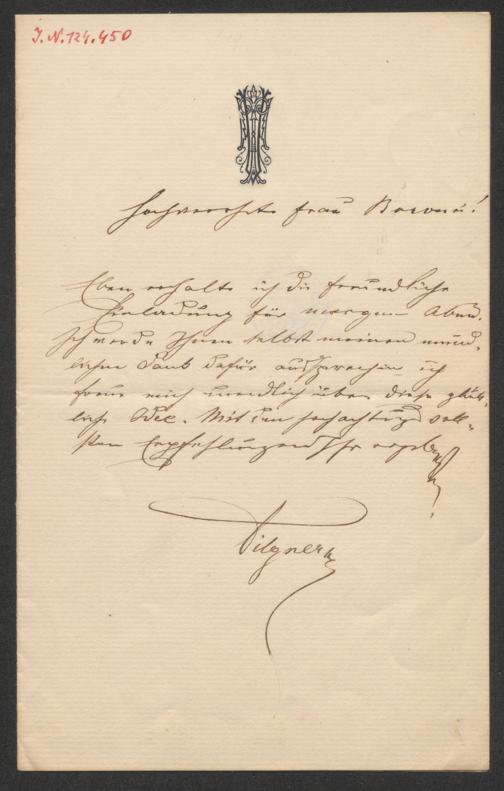 J. N. 124.450
Hochverehrte Frau Baronin!
Eben erhalte ich die freundliche
Einladung für morgen Abend.
Ich werde Ihnen selbst meinen münd-
lichen Dank dafür aussprechen ich
freue mich unendlich über diese glück-
liche Idee. Mit den hochachtungsvoll-
sten Empfehlungen Ihr ergebenster
Tilgner